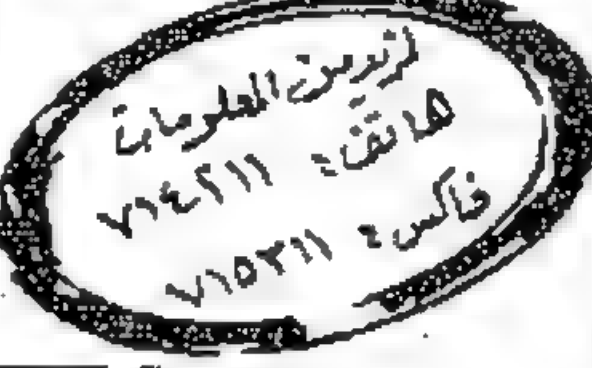 لمزيد من المعلومات
هاتف: ٧١٤٢١١
فاكس: ٧١٥٣١١